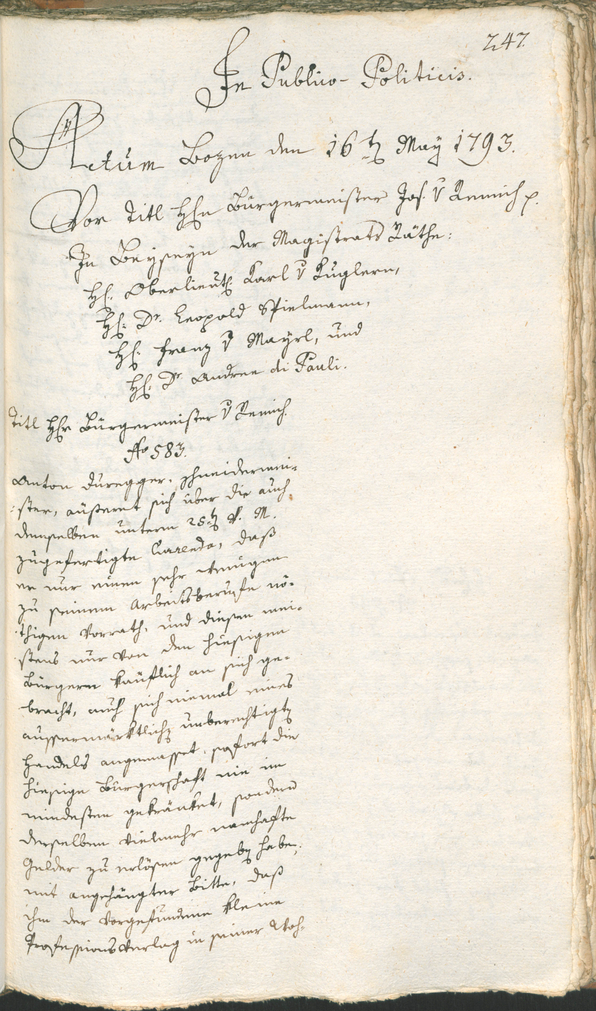 247.
In Publico-Politicis.
Actum Bozen den 16tn May 1793.
Vor Titl Hn Bürgermeister Jos. v Remich p.
In Beyseyn der Magistrats Räthe:
H: Oberlieut: Karl v Kuglern,
H: Dr. Leopold Spielmann,
H: Franz v Mayrl, und
H: Dr Andree di Pauli.
Titl Hr Bürgermeister v Remich
No 583.
Anton Duregger, Schneidermei-
ster, äußeret sich über die auch
demselben unterm 25tn v. M.
zugefertigte Currenda, daß
er nur einen sehr wenigen
zu seinem Arbeitsberufe nö-
thigen Vorrath, und diesen mei-
stens nur von den hiesigen
Bürgern käuflich an sich ge-
bracht, auch sich niemal eines
aussermärktlichn unberechtigtn
Handels angemasset, sofort die
hiesige Bürgerschaft nie im
mindesten gekränket, sondern
derselben vielmehr namhafte
Gelder zu erlösen gegebn habe,
mit angehängter Bitte, daß
ihm der vorgefundene kleine
Professionsverlag in seiner Woh-